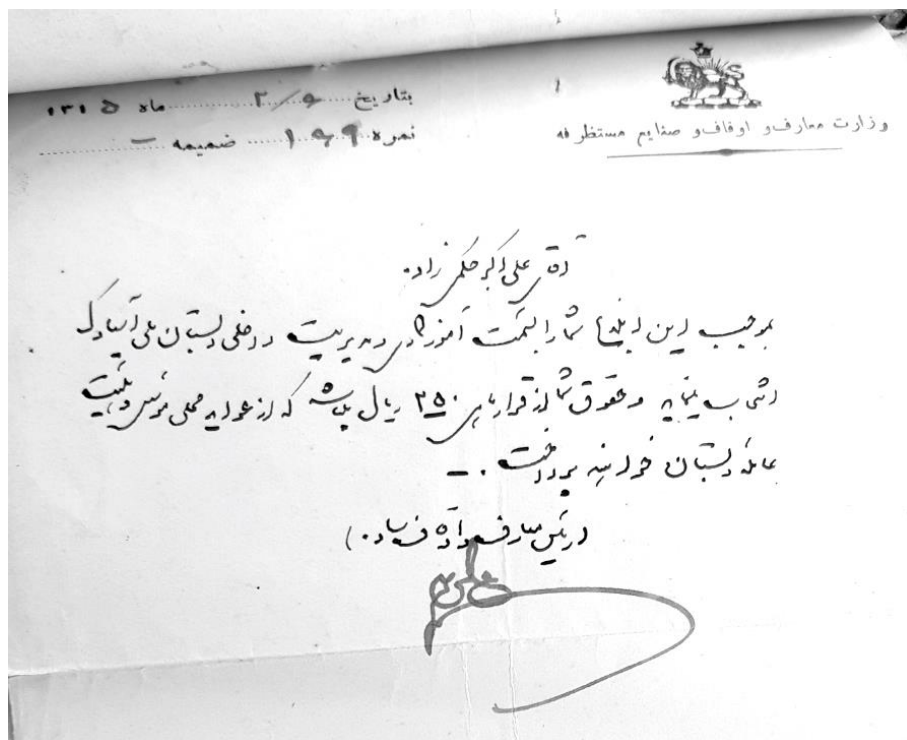 وزارت معارف و اوقاف و صنایع مستظرفه
بتاریخ ۲/۶ ماه ۱۳۱۵
نمره ۱۶۹ ضمیمه -
آقای علی اکبر حکمی زاده
بموجب این ابلاغ شما را بسمت آموزگاری و مدیریت داخلی دبستان ملی
انتخاب مینماید و حقوق شما از قرار ماهی ۲۵۰ ریال میباشد که از عواید محلی
دبستان خواهند پرداخت . –
رئیس معارف و اوقاف